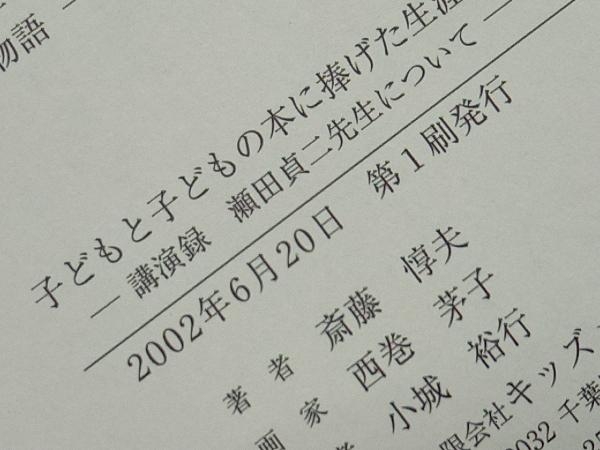 物語 ―
子どもと子どもの本に捧げた生涯
― 講演録 瀬田貞二先生について ―
2002年6月20日 第1刷発行
著者 斎藤 惇夫
画家 西巻 茅子
者 小城 裕行
限会社キッズ
0032 千葉